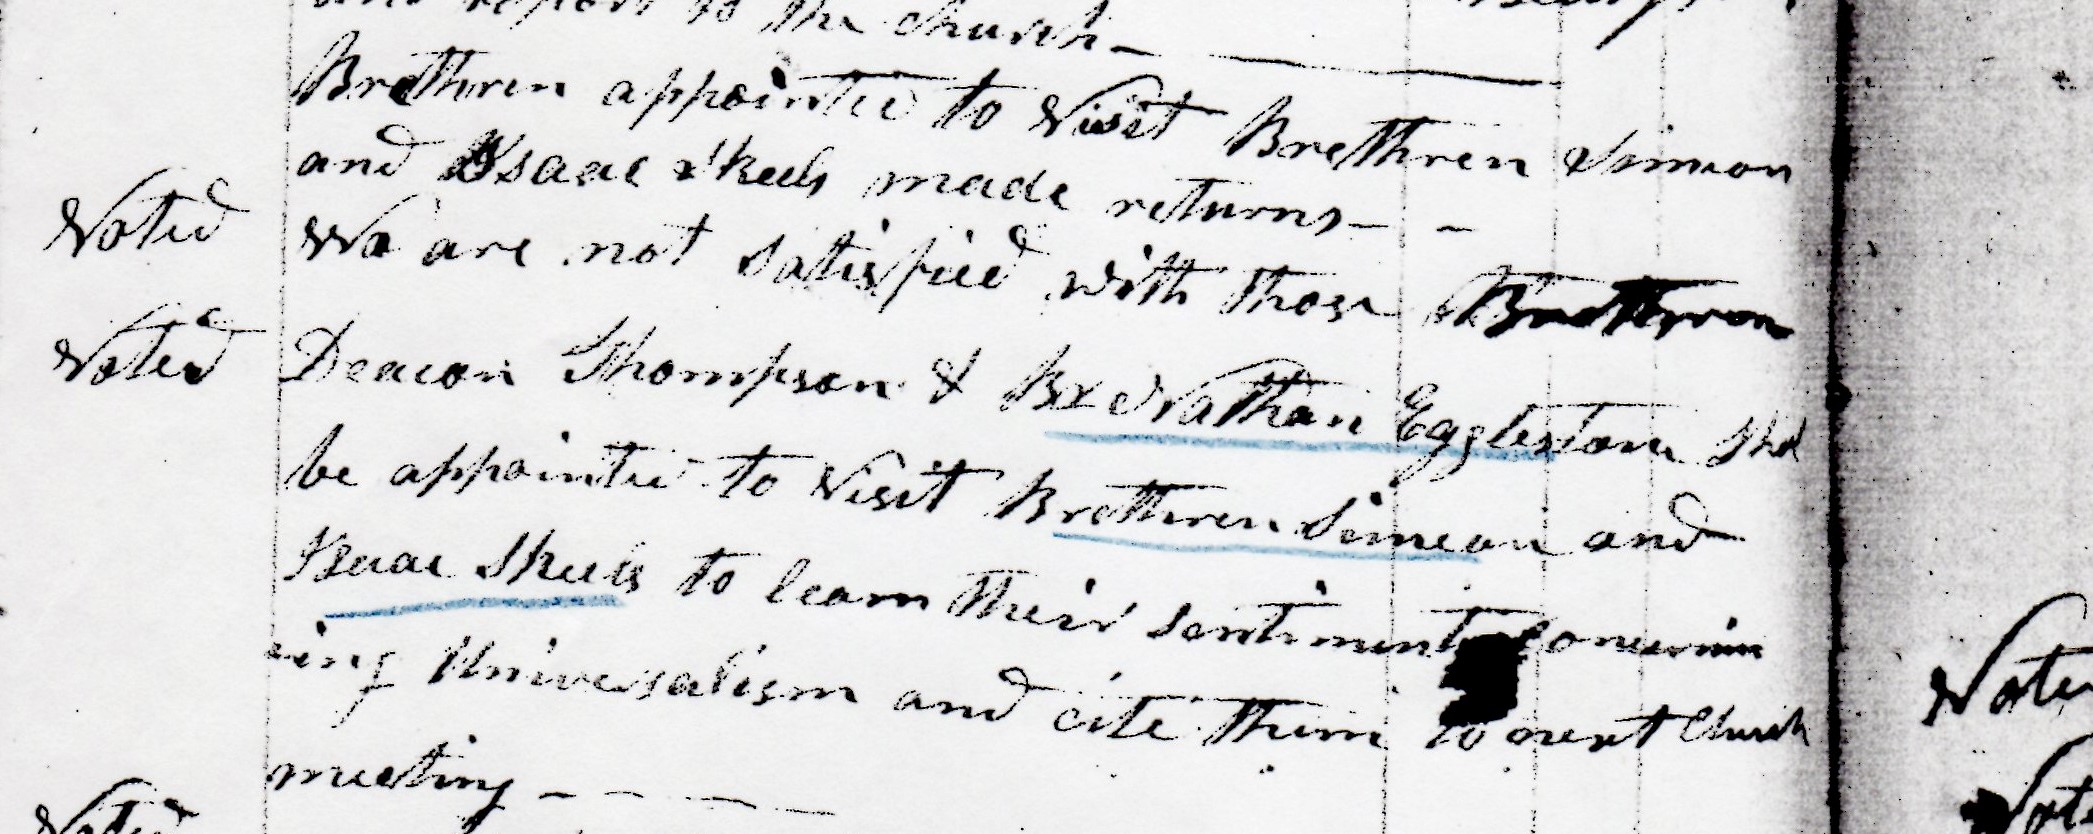 and report to the Church—
Brethren appointed to Visit Brethren Simeon
and Isaac Skeels made returns— –
Voted We are not satisfied with those Brethren
Voted Deacon Thompson & Br Nathan Eggleston Shd
be appointed to Visit Brethren Simeon and
Isaac Skeels to learn their sentiments Concernin
ing Universalism and cite them to next Church
meeting – – – –
Voted
Voted
Voted